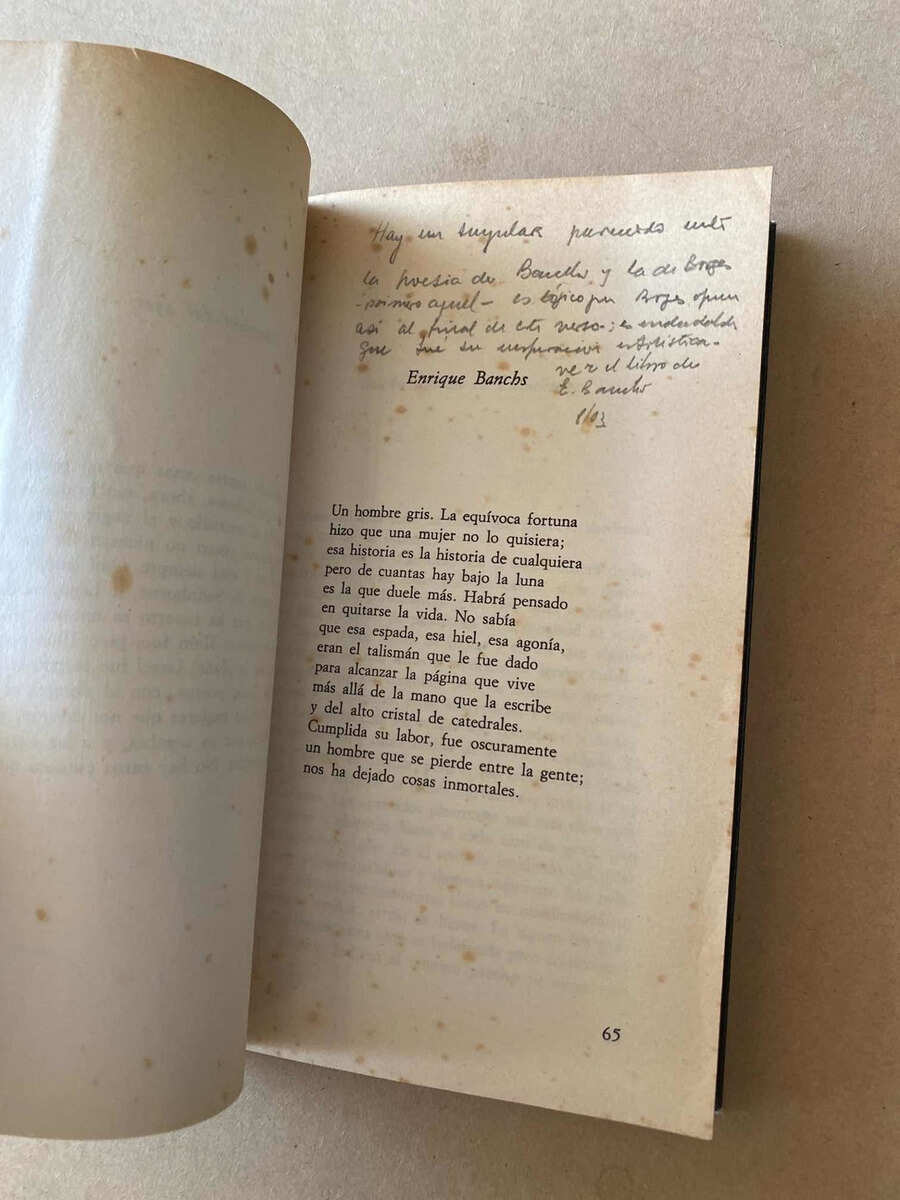 Hay un singular parecido entre
la poesía de Banchs y la de Borges
-primero aquel- es lógico que Borges opine
así al final de este verso; es indudable
que fué su inspiración artística-
ver el libro de
E. Banchs
8/03
Enrique Banchs
Un hombre gris. La equívoca fortuna
hizo que una mujer no lo quisiera;
esa historia es la historia de cualquiera
pero de cuantas hay bajo la luna
es la que duele más. Habrá pensado
en quitarse la vida. No sabía
que esa espada, esa hiel, esa agonía,
eran el talismán que le fue dado
para alcanzar la página que vive
más allá de la mano que la escribe
y del alto cristal de catedrales.
Cumplida su labor, fue oscuramente
un hombre que se pierde entre la gente;
nos ha dejado cosas inmortales.
65